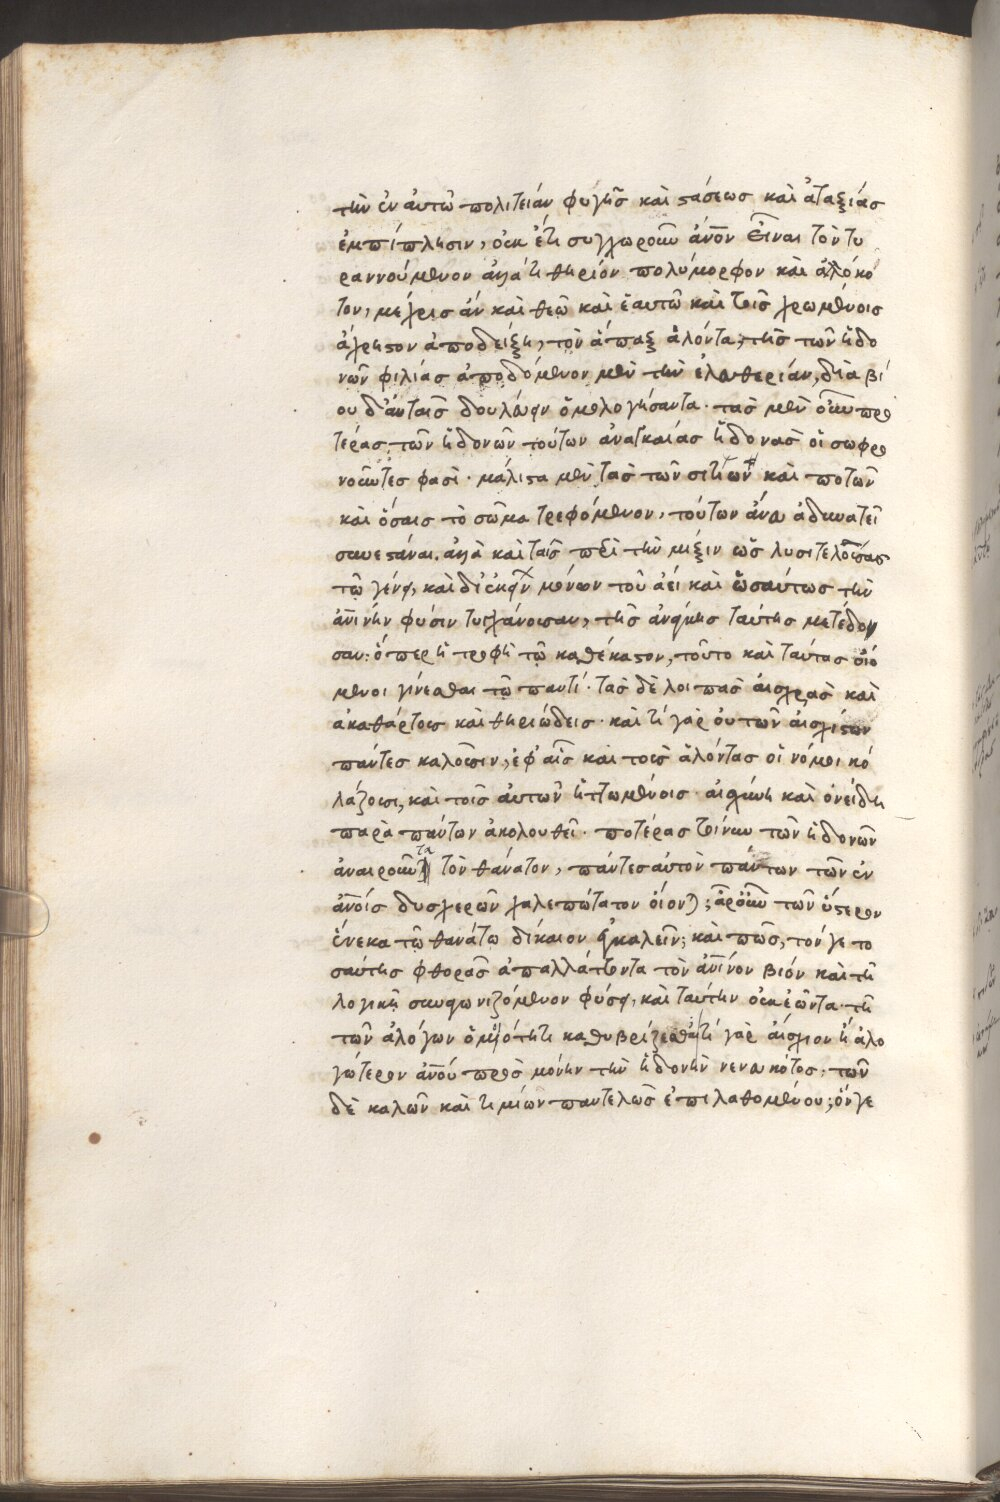 τὴν ἐν ἀυτῶ πολιτείαν φυγῆς καὶ ϛάσεως καὶ ἀταξίας
ἐμπίπλησιν, ὀυκ ἔτι συγχωροῦν ἀνον εἶναι τὸν τυ
ραννούμενον ἀλλά τι θηρίον πολύμορφον καὶ ἀλλόκο
τον, μέχρις ἂν καὶ θεῶ καὶ ἑαυτῶ καὶ τοῖς χρωμένοις
ἄχρηϛον ἀποδείξη, τὸν ἅπαξ ἁλόντα, τῆς τῶν ἡδο
νῶν φιλίας ἀποδόμενον μὲν τὴν ἐλευθερίαν, διὰ βί
ου δ' ἀυταῖς δουλεύειν ὁμολογήσαντα. τὰς μὲν οὖν προ
τέρας τῶν ἡδονῶν τούτων ἀναγκαίας ἡδονὰς οἱ σωφρο
νοῦντες φασὶ. μάλιϛα μὲν τὰς τῶν σιτίων καὶ ποτῶν
καὶ ὅσαις τὸ σῶμα τρεφόμενον, τούτων ἄνευ ἀδυνατεῖ
συνεϛάναι. ἀλλὰ καὶ ταῖς περὶ τὴν μίξιν ὡς λυσιτελούσας
τῶ γένει, καὶ δι' ἐκείνων μόνων τοῦ ἀεὶ καὶ ὡσαύτως τὴν
ἀνίνην φύσιν τυγχάνουσαν, τῆς ἀνάγκης ταύτης μετέδο
σαν: ὅπερ ἡ τροφὴ τῶ καθέκαϛον, τοῦτο καὶ ταύτας οἰό
μενοι γίνεσθαι τῶ παντί. τὰς δὲ λοιπὰς ἀισχρὰς καὶ
ἀκαθάρτους καὶ θηριώδεις. καὶ τί γὰρ ὀυ τῶν ἀισχίϛων
πάντες καλοῦσιν, ἐφ' αἷς καὶ τοὺς ἁλόντας οἱ νόμοι κο
λάζουσι, καὶ τοῖς ἀυτῶν ἡττωμένοις ἀισχύνη καὶ ὀνείδη
παρὰ πάντων ἀκολουθεῖ. ποτέρας τοίνυν τῶν ἡδονῶν
ἀναιροῦντα τὸν θάνατον, πάντες ἀυτὸν πάντων τῶν ἐν
ἀνοίς δυσχερῶν χαλεπώτατον οἴονται; ἆρ' οὖν τῶν ὕϛερον
ἕνεκα τῶ θανάτω δίκαιον ἐγκαλεῖν; καὶ πῶς, τόν γε το
σαύτης φθορᾶς ἀπαλλάττοντα τὸν ἀνίνον βίον καὶ τῆ
λογικῆ συμφωνιζόμενον φύσει, καὶ ταύτην ὀυκ ἐῶντα τῆ
τῶν ἀλόγων ὁμοιότητι καθυβρίζεσθαι; τί γὰρ ἀίσχιον ἢ ἀλο
γώτερον ἀνου πρὸς μόνην τὴν ἡδονὴν νενευκότος; τῶν
δὲ καλῶν καὶ τιμίων παντελῶς ἐπιλαθομένου; ὅν γε